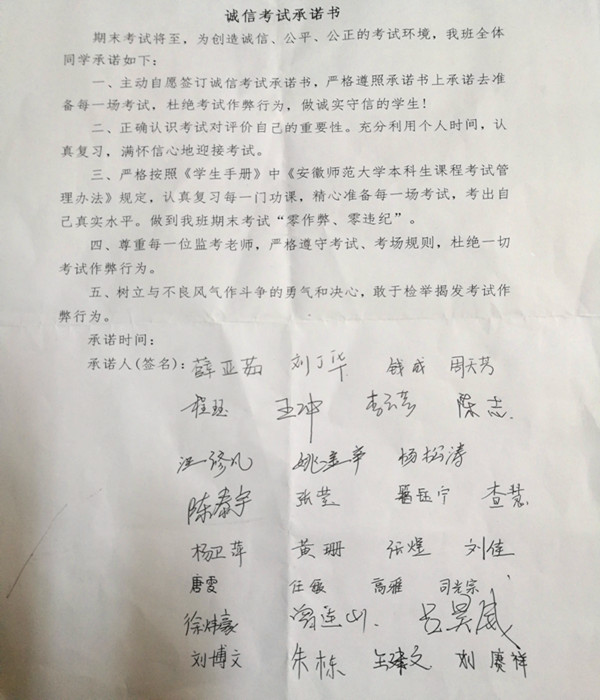 诚信考试承诺书
期末考试将至，为创造诚信、公平、公正的考试环境，我班全体
同学承诺如下：
一、主动自愿签订诚信考试承诺书，严格遵照承诺书上承诺去准
备每一场考试，杜绝考试作弊行为，做诚实守信的学生！
二、正确认识考试对评价自己的重要性。充分利用个人时间，认
真复习，满怀信心地迎接考试。
三、严格按照《学生手册》中《安徽师范大学本科生课程考试管
理办法》规定，认真复习每一门功课，精心准备每一场考试，考出自
己真实水平。做到我班期末考试“零作弊、零违纪”。
四、尊重每一位监考老师，严格遵守考试、考场规则，杜绝一切
考试作弊行为。
五、树立与不良风气作斗争的勇气和决心，敢于检举揭发考试作
弊行为。
承诺时间：
承诺人(签名)：薛亚茹 刘丁华 钱成 周天芳
程珏 王坤 陈志
汪修凡 姚金华 杨松涛
陈春宇 张莹 查慧
杨卫萍 黄珊 张煜 刘佳
唐雯 任敏 高雅 司光宗
徐炜豪 曾连山 吕昊威
刘博文 朱栋 王建文 刘赓祥